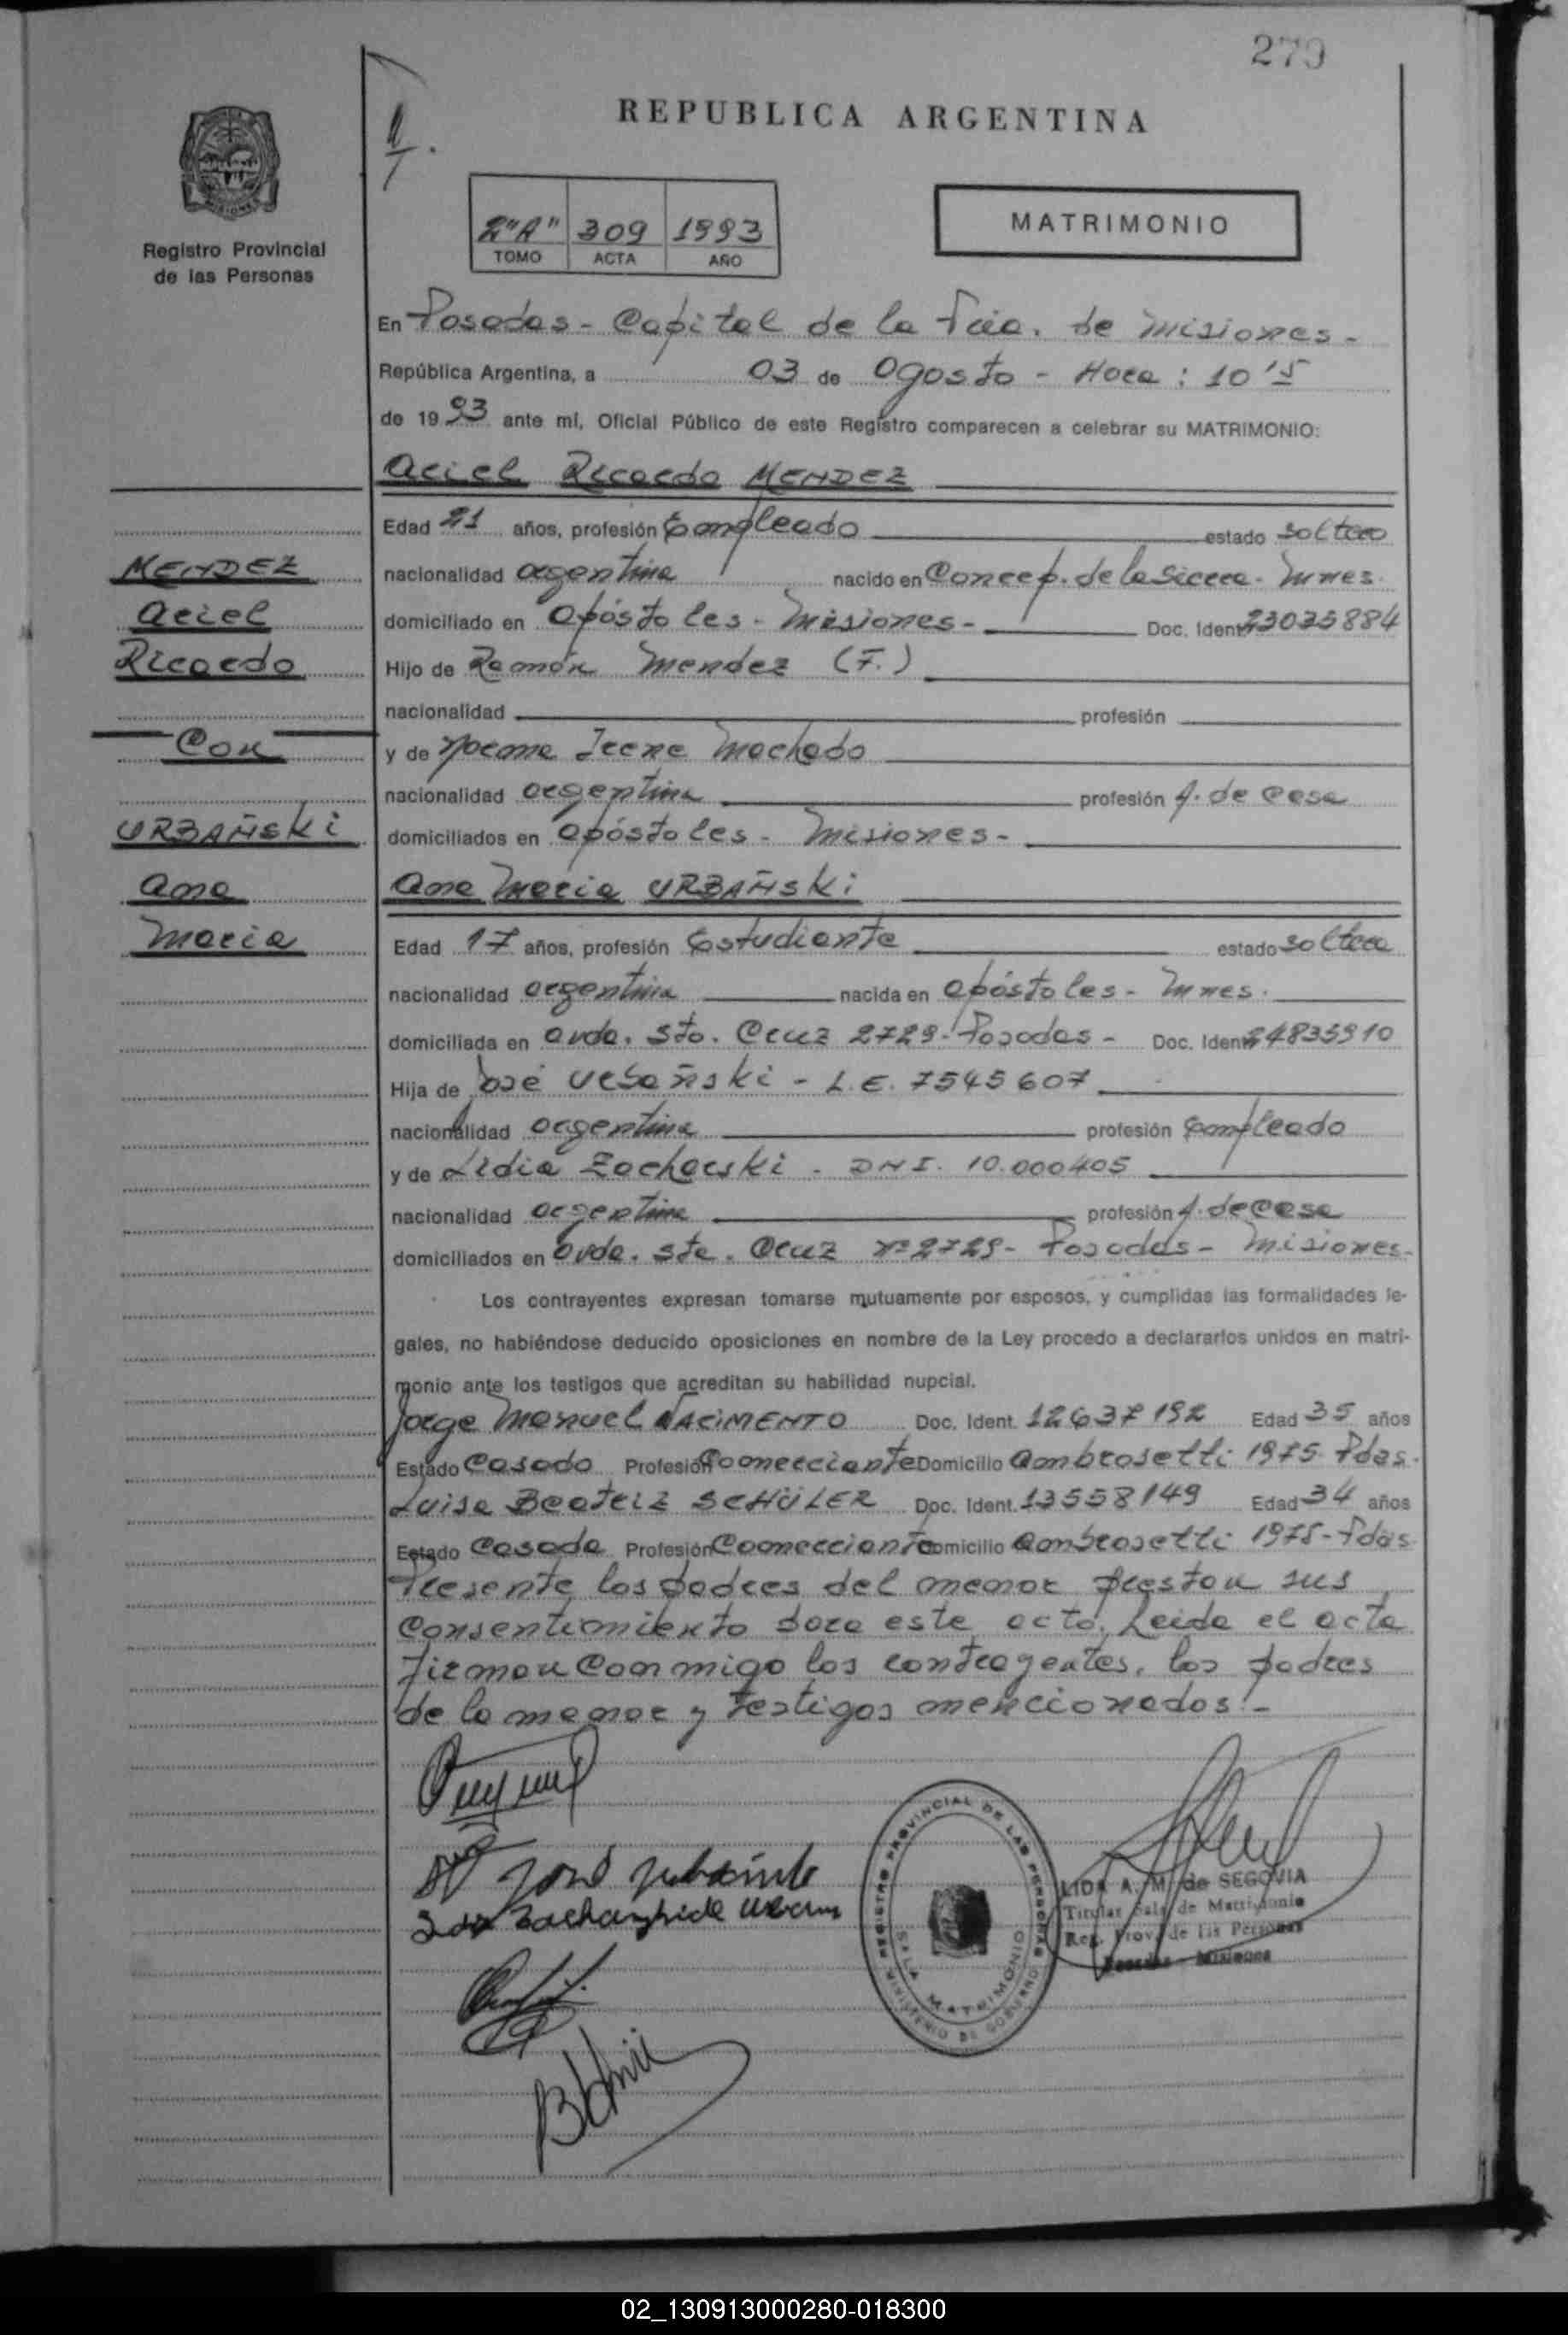 279
REPUBLICA ARGENTINA
MATRIMONIO
2"A" 309 1993
TOMO ACTA AÑO
Registro Provincial
de las Personas
En Posadas - Capital de la Pcia. de Misiones -
República Argentina, a 03 de Agosto - Hora: 10'15
de 1993 ante mí, Oficial Público de este Registro comparecen a celebrar su MATRIMONIO:
Ariel Ricardo MENDEZ
Edad 21 años, profesión Empleado estado soltero
nacionalidad argentina nacido en Concep. de la Sierra - Mnes.
domiciliado en Apóstoles - Misiones - Doc. Ident. 23035884
Hijo de Ramón Mendez (F.)
nacionalidad profesión
y de Irene Machado
nacionalidad argentina profesión A. de casa
domiciliados en Apóstoles - Misiones -
Ana Maria URBAÑSKi
Edad 17 años, profesión Estudiante estado soltera
nacionalidad argentina nacida en Apóstoles - Mnes.
domiciliada en Avda. Sta. Cruz 2729 - Posadas - Doc. Ident. 24835910
Hija de José Urbañski - L.E. 7545607
nacionalidad argentina profesión Empleado
y de Lidia Zacharski - DNI. 10.000405
nacionalidad argentina profesión A. de casa
domiciliados en Avda. Sta. Cruz Nº 2729 - Posadas - Misiones -
Los contrayentes expresan tomarse mutuamente por esposos, y cumplidas las formalidades le-
gales, no habiéndose deducido oposiciones en nombre de la Ley procedo a declararlos unidos en matri-
monio ante los testigos que acreditan su habilidad nupcial.
Jorge Manuel NACiMENTO Doc. Ident. 12637192 Edad 35 años
Estado Casado Profesión Comerciante Domicilio Ambrosetti 1975 - Pdas.
Luisa Beatriz SCHÜLER Doc. Ident. 13558149 Edad 34 años
Estado Casada Profesión Comerciante Domicilio Ambrosetti 1975 - Pdas.
Presente los padres del menor prestan sus
Consentimiento para este acto. Leida el acta
firman conmigo los contrayentes, los padres
de la menor y testigos mencionados. -
MENDEZ
Ariel
Ricardo
Con
URBAÑSKi
Ana
Maria
REGISTRO PROVINCIAL DE LAS PERSONAS
MINISTERIO DE GOBIERNO
SALA MATRIMONIO
LIDA A. M. de SEGOVIA
Titular Sala de Matrimonio
Reg. Prov. de las Personas
Posadas - Misiones
02_130913000280-018300